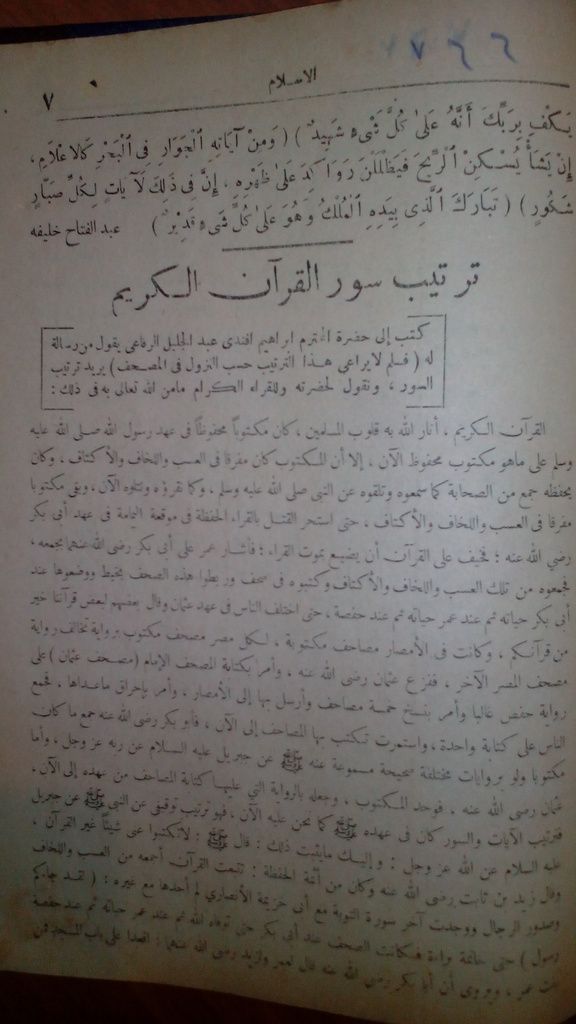 ٧٦٦
الاسلام
٧
يَكْفِ بِرَبِّكَ أَنَّهُ عَلَىٰ كُلِّ شَىْءٍ شَهِيدٌ ) ( وَمِنْ آيَاتِهِ الْجَوَارِ فِى الْبَحْرِ كَالأَعْلَامِ ،
إِنْ يَشَأْ يُسْكِنِ الرِّيحَ فَيَظْلَلْنَ رَوَاكِدَ عَلَىٰ ظَهْرِهِ ، إِنَّ فِى ذَٰلِكَ لَآيَاتٍ لِكُلِّ صَبَّارٍ
شَكُورٍ ) ( تَبَارَكَ الَّذِى بِيَدِهِ الْمُلْكُ وَهُوَ عَلَىٰ كُلِّ شَىْءٍ قَدِيرٌ ) عبد الفتاح خليفه
ترتيب سور القرآن الكريم
كتب إلى حضرة المحترم ابراهيم افندى عبد الجليل الرفاعى يقول من رسالة
له ( فلم لا يراعى هذا الترتيب حسب النزول فى المصحف ) يريد ترتيب
السور ، ونقول لحضرته وللقراء الكرام مامن الله تعالى به فى ذلك :
القرآن الكريم ، أنار الله به قلوب المسلمين ، كان مكتوباً محفوظاً فى عهد رسول الله صلى الله عليه
وسلم على ماهو مكتوب محفوظ الآن ، إلا أن المكتوب كان مفرقا فى العسب واللخاف والأكتاف ، وكان
يحفظه جمع من الصحابة كما سمعوه وتلقوه عن النبى صلى الله عليه وسلم ، وكما نقرؤه ونتلوه الآن ، وبقى مكتوبا
مفرقا فى العسب واللخاف والأكتاف ، حتى استحر القتل بالقراء الحفظة فى موقعة اليمامة فى عهد أبى بكر
رضى الله عنه ؛ فخيف على القرآن أن يضيع بموت القراء ؛ فأشار عمر على أبى بكر رضى الله عنهما بجمعه ،
فجمعوه من تلك العسب واللخاف والأكتاف وكتبوه فى صحف وربطوا هذه الصحف بخيط ووضعوها عند
أبى بكر حياته ثم عند عمر حياته ثم عند حفصة ، حتى اختلف الناس فى عهد عثمان وقال بعضهم لبعض قرآننا خير
من قرآنكم ، وكانت فى الأمصار مصاحف مكتوبة ، لكل مصر مصحف مكتوب برواية تخالف رواية
مصحف المصر الآخر ، ففزع عثمان رضى الله عنه ، وأمر بكتابة المصحف الإمام (مصحف عثمان) على
رواية حفص غالبا وأمر بنسخ خمسة مصاحف وأرسل بها إلى الأمصار ، وأمر بإحراق ماعداها ، فجمع
الناس على كتابة واحدة ، واستمرت تكتب بها المصاحف إلى الآن ، فأبو بكر رضى الله عنه جمع ما كان
مكتوبا ولو بروايات مختلفة صحيحة مسموعة عنه ﷺ عن جبريل عليه السلام عن ربه عز وجل ، وأما
عثمان رضى الله عنه ، فوحد المكتوب ، وجعله بالرواية التى عليها كتابة المصاحف من عهده إلى الآن .
فترتيب الآيات والسور كان فى عهده ﷺ كما نحن عليه الآن ، فهو ترتيب توقيفى عن النبى ﷺ عن جبريل
عليه السلام عن الله عز وجل : وإليك مايثبت ذلك : قال ﷺ : لاتكتبوا عنى شيئاً غير القرآن ،
وقال زيد بن ثابت رضى الله عنه وكان من أئمة الحفظة : تتبعت القرآن أجمعه من العسب واللخاف
وصدور الرجال ووجدت آخر سورة التوبة مع أبى خزيمة الأنصارى لم أجدها مع غيره : ( لقد جاءكم
رسول ) حتى خاتمة براءة فكانت الصحف عند أبى بكر حتى توفاه الله ثم عند عمر حياته ثم عند حفصة
بنت عمر ، ويروى أن أبا بكر رضى الله عنه قال لعمر ولزيد رضى الله عنهما : اقعدا على باب المسجد فمن